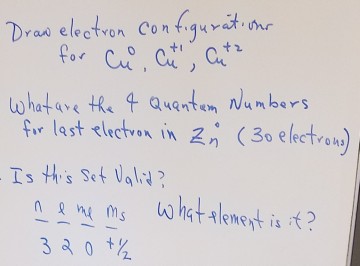 Draw electron configurations
for Cu⁰, Cu⁺¹, Cu⁺²
What are the 4 Quantum Numbers
for last electron in Zn⁰ (30 electrons)
Is this Set Valid?
n l ml ms What element is it?
3 2 0 +1/2